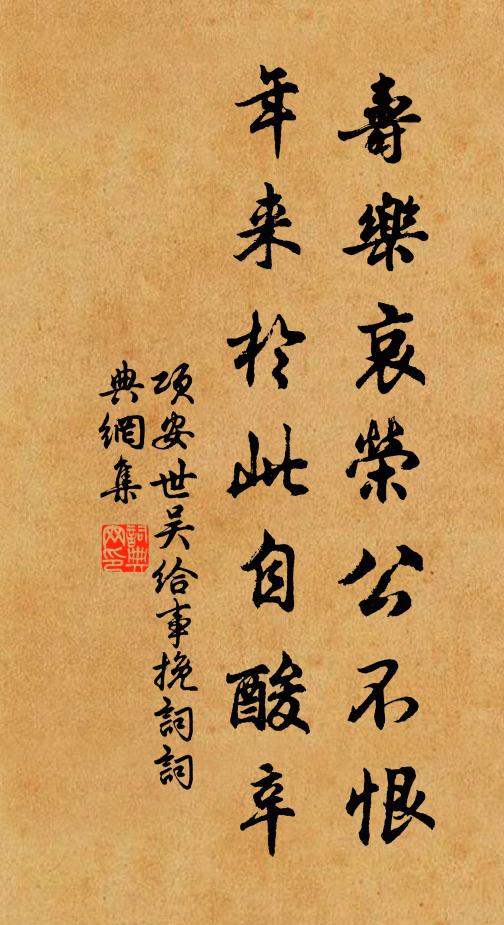 壽樂哀榮公不恨
年来於此自酸辛
項安世吴给事挽詞詞
典網集
詞典
网印